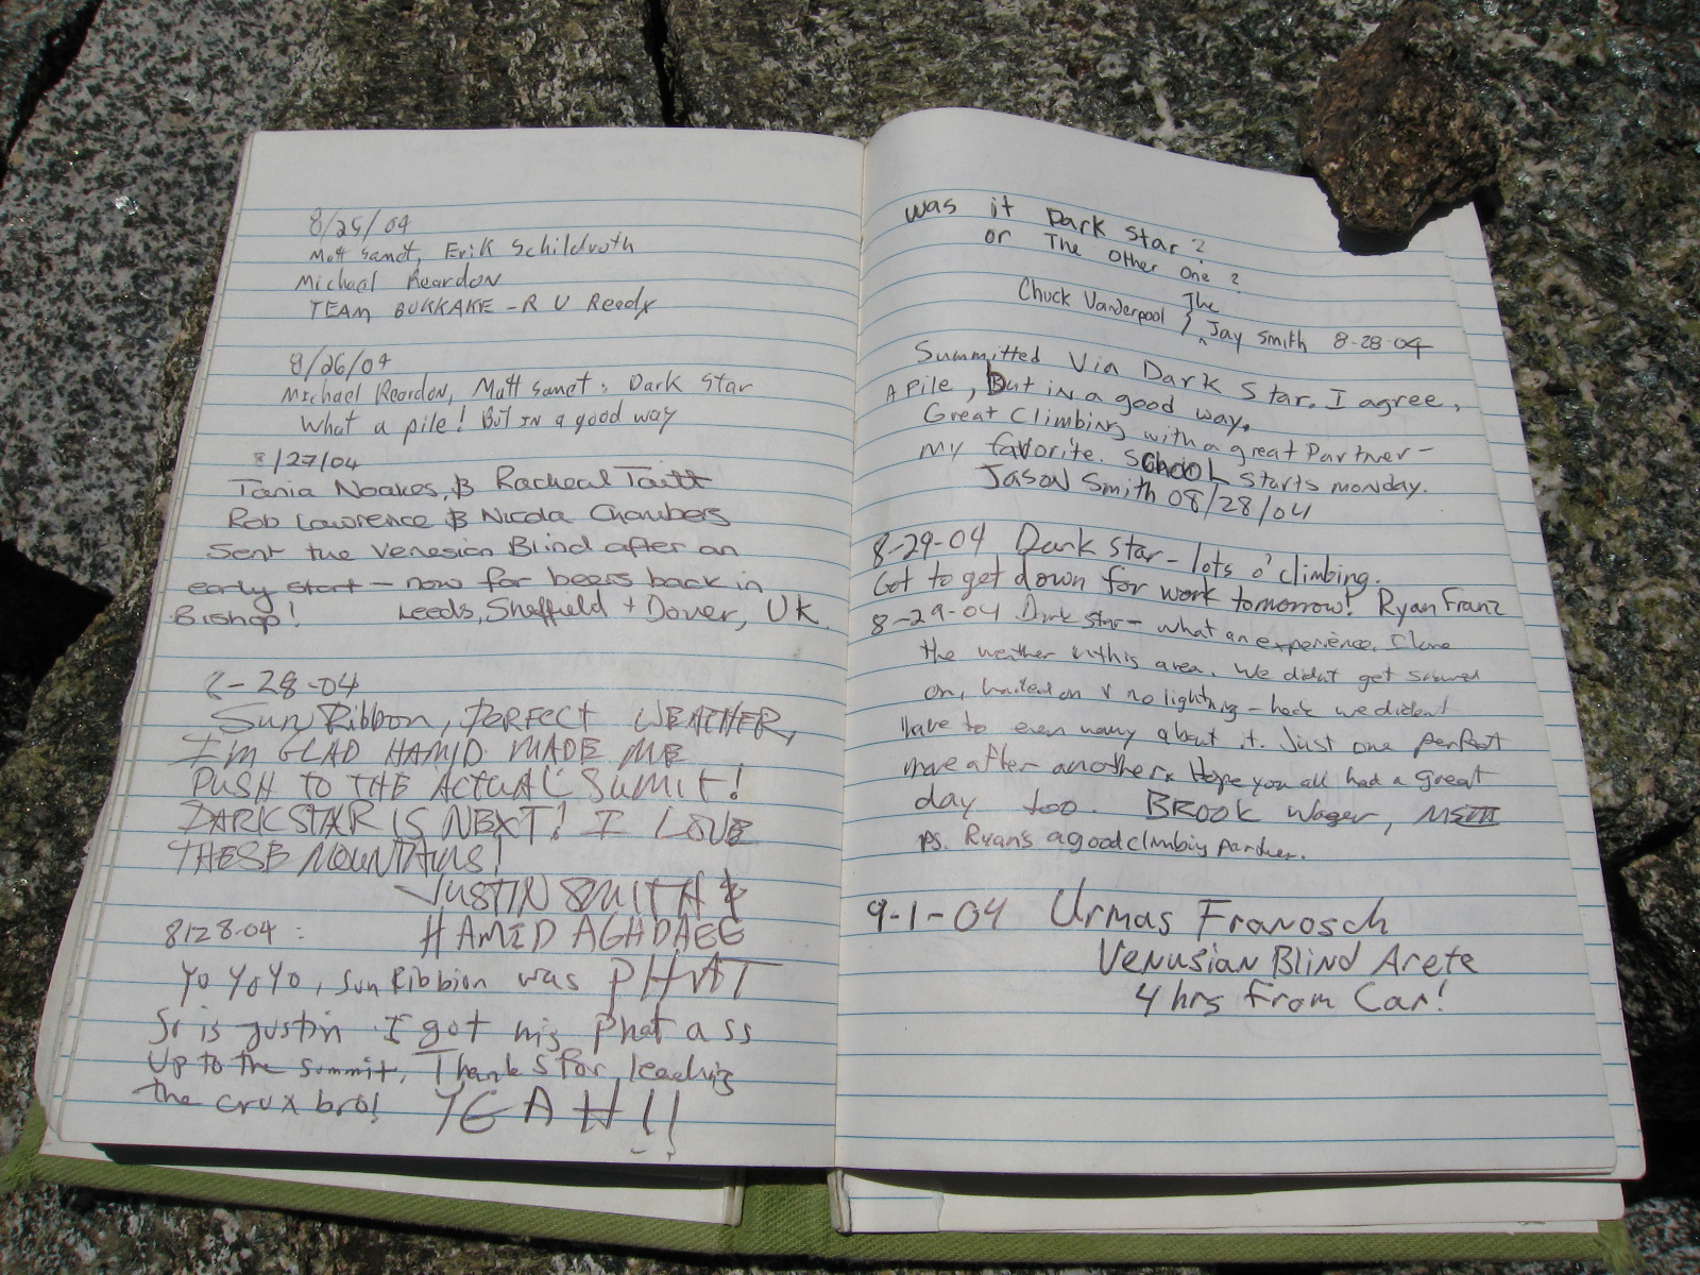 8/25/04
Matt Sanct, Erik Schildroth
Michael Reardon
TEAM BUKKAKE - R U Ready
8/26/04
Michael Reardon, Matt Sanct: Dark Star
What a pile! But in a good way
8/27/04
Tania Noakes, & Racheal Taitt
Rob Lawrence & Nicola Chambers
Sent the Venesian Blind after an
early start - now for beers back in
Bishop! Leeds, Sheffield + Dover, UK.
8-28-04
Sun Ribbon, PERFECT WEATHER,
I'M GLAD HAMID MADE ME
PUSH TO THE ACTUAL SUMIT!
DARKSTAR IS NEXT! I LOVE
THESE MOUNTAINS!
JUSTIN SMITH &
8/28.04: HAMID AGHDAEE
Yo YoYo, Sun Ribbion was PHAT
is justin I got his Phat ass
Up to the summit, Thanks for leading
the crux bro! YEAH!!
was it Dark Star?
or The Other One?
The
Chuck Vanderpool & Jay Smith 8-28-04
Summitted Via Dark Star. I agree,
A Pile, But in a good way.
Great Climbing with a great Partner -
my favorite. SChooL Starts monday.
Jason Smith 08/28/04
8-29-04 Dark Star - lots o' climbing.
Got to get down for work tomorrow! Ryan Franz
8-29-04 Dark Star - what an experience. I love
the weather in this area. We didnt get
on, hailed on & no lightning - heck we
have to even worry about it. Just one perfect
move after another. Hope you all had a great
day too. BROOK Wager,
ps. Ryan's a good climbing partner.
9-1-04 Urmas Franosch
Venusian Blind Arete
4 hrs From Car!